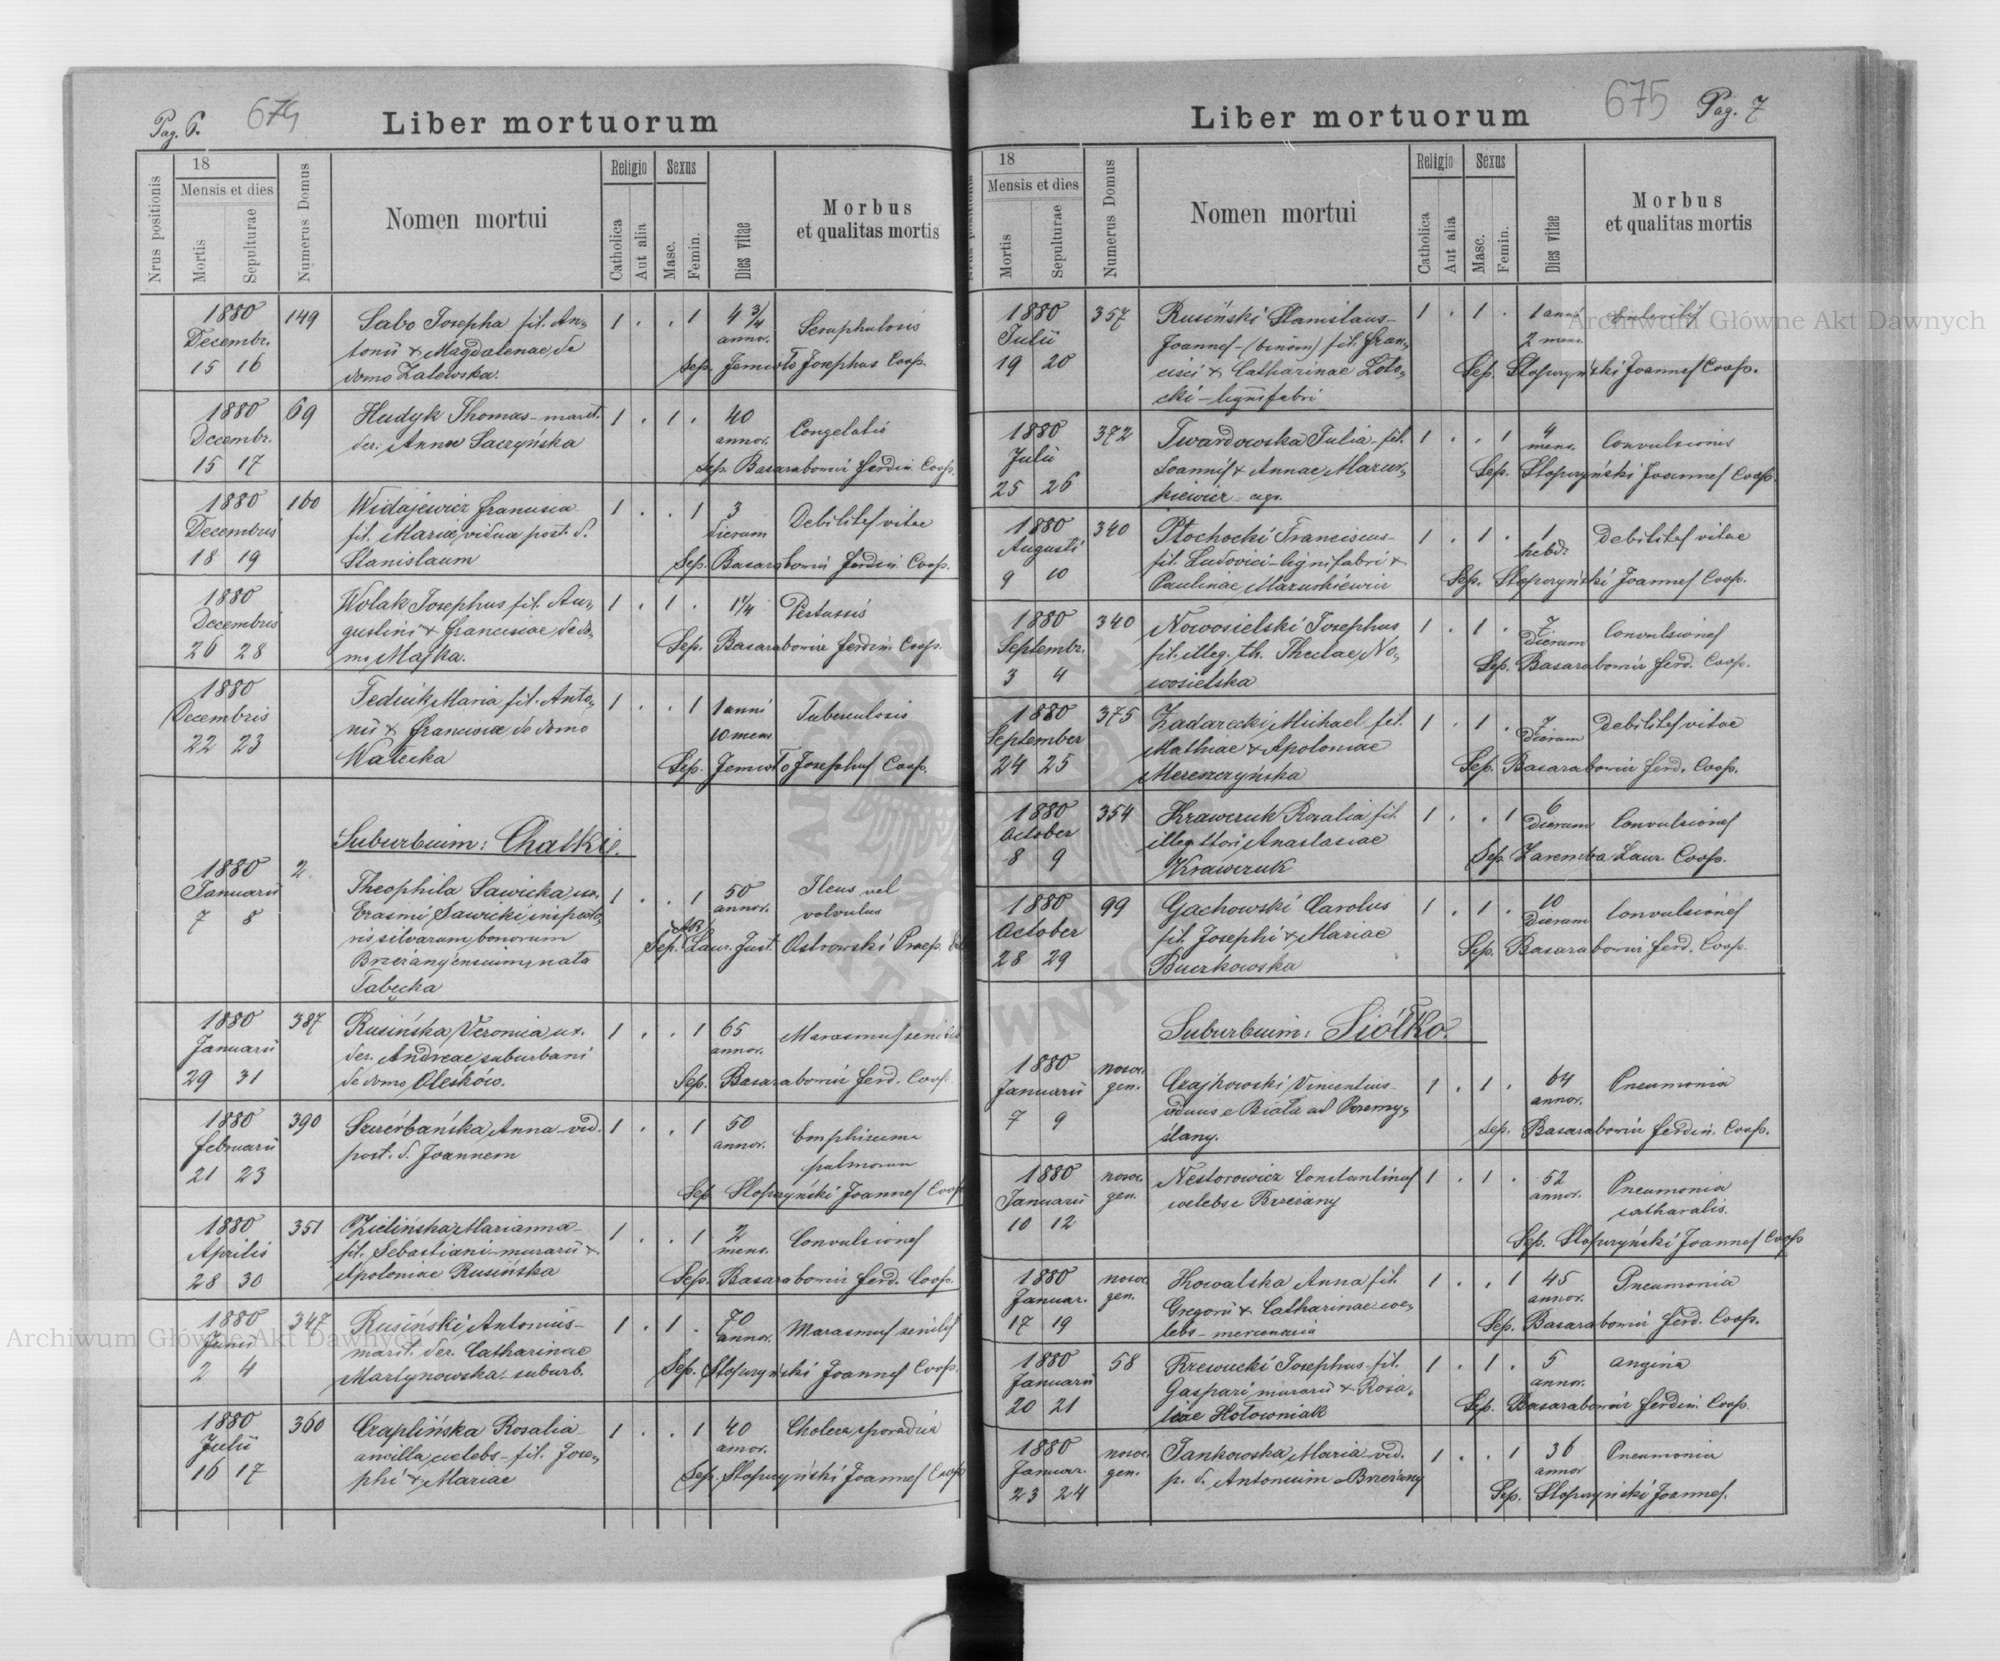 Pag. 6.
674
Liber mortuorum
Nrus positionis
18
Mensis et dies
Mortis
Sepulturae
Numerus Domus
Nomen mortui
Religio
Catholica
Aut alia
Sexus
Masc.
Femin.
Dies vitae
Morbus
et qualitas mortis
1880 149 Sabo Josepha fil. An- 1 . . 1 4 3/4 Scrophulosis
Decembr. tonii & Magdalenae de annor.
15 16 domo Zalewska. Sep. Jemioło Josephus Coop.
1880 69 Hudyk Thomas - marit. 1 . 1 . 40 Congelatio
Decembr. der. Anna Saczyńska annor.
15 17 Sep. Basarabowicz Ferdin. Coop.
1880 160 Widajewicz Francisca 1 . . 1 3 Debilitas vitae
Decembris fil. Mariae, vidua post. d. dierum
18 19 Stanislaum Sep. Basarabowicz Ferdin. Coop.
1880 Wolak Josephus fil. Au- 1 . 1 . 1 1/4 Pertussis
Decembris gustini & Franciscae, de do-
26 28 mo Majka. Sep. Basarabowicz Ferdin. Coop.
1880 Fedziuk Maria fil. Anto- 1 . . 1 1 anni Tuberculosis
Decembris nii & Franciscae de domo 10 mens
22 23 Wałecka Sep. Jemioło Josephus Coop.
Suburbium: Chatki.
1880 2. Theophila Sawicka, ux. 1 . . 1 50 Ileus vel
Januarii Erasmi Sawicki inspecto- annor. volvulus
7 8 ris silvarum bonorum Sep. Laur. Just. Ostrowski Praep.
Brzezanyensium, nata
Tabęcka
1880 387 Rusińska Veronica ux. 1 . . 1 65 Marasmus senilis
Januarii der. Andreae, suburbani annor.
29 31 de domo Oleśków. Sep. Basarabowicz Ferd. Coop.
1880 390 Szczérbańska Anna - vid. 1 . . 1 50 Emphisema
Februarii post. d. Joannem annor. pulmorum
21 23 Sep. Stopczyński Joannes Coop
1880 351 Zielińska Marianna - 1 . . 1 2 Convulsiones
Aprilis fil. Sebastiani - murarii & mens.
28 30 Apoloniae Rusińska Sep. Basarabowicz Ferd. Coop.
1880 347 Rusiński Antonius - 1 . 1 . 70 Marasmus senilis
Junii marit. der. Catharinae annor.
2 4 Martynowska - suburb. Sep. Stopczyński Joannes Coop.
1880 360 Czaplińska Rosalia 1 . . 1 40 Cholera sporadica
Julii ancilla, caelebs - fil. Jose- annor.
16 17 phi & Mariae Sep. Stopczyński Joannes Coop
675
Pag. 7
Liber mortuorum
Nrus positionis
18
Mensis et dies
Mortis
Sepulturae
Numerus Domus
Nomen mortui
Religio
Catholica
Aut alia
Sexus
Masc.
Femin.
Dies vitae
Morbus
et qualitas mortis
1880 357 Rusiński Stanislaus - 1 . 1 . 1 anni
Julii Joannes - (binom) fil. Fran- 2 mens.
19 20 cisci & Catharinae Łoto- Sep. Stopczyński Joannes Coop.
cki - lignifabri
1880 372 Twardowska Julia - fil. 1 . . 1 4 Convulsiones
Julii Joannis & Annae Mazur- mens.
25 26 kiewicz - agr. Sep. Stopczyński Joannes Coop.
1880 340 Płochocki Franciscus - 1 . 1 . 1 Debilitas vitae
Augusti fil. Ludovici - lignifabri & hebd.
9 10 Paulinae Mazurkiewicz Sep. Stopczyński Joannes Coop.
1880 340 Nowosielski Josephus 1 . 1 . 7 Convulsiones
Septembr. fil. illeg. th. Theclae, No- dierum
3 4 wosielska Sep. Basarabowicz Ferd. Coop.
1880 375 Zadarecki Michael fil. 1 . 1 . 7 Debilitas vitae
September Mathiae & Apoloniae dierum
24 25 Merenczyńska Sep. Basarabowicz Ferd. Coop.
1880 354 Krawczuk Rosalia fil. 1 . . 1 6 Convulsiones
October illeg. thori Anastasiae dierum
8 9 Krawczuk Sep. Zaremba Laur. Coop.
1880 99 Gachowski Carolus 1 . 1 . 10 Convulsiones
October fil. Josephi & Mariae dierum
28 29 Buczkowska Sep. Basarabowicz Ferd. Coop.
Suburbium: Siółko.
1880 nosoc. Czajkowski Vincentius - 1 . 1 . 64 Pneumonia
Januarii gen. viduus e Biała ad Przemy- annor.
7 9 ślany. Sep. Basarabowicz Ferdin. Coop.
1880 nosoc. Nestorowicz Constantinus 1 . 1 . 52 Pneumonia
Januarii gen. caelebs e Brzezany annor. catharalis.
10 12 Sep. Stopczyński Joannes Coop
1880 nosoc. Kowalska Anna fil. 1 . . 1 45 Pneumonia
Januar. gen. Gregorii & Catharinae cae- annor.
17 19 lebs - mercenaria Sep. Basarabowicz Ferd. Coop.
1880 58 Rzewucki Josephus - fil. 1 . 1 . 5 angina
Januarii Gaspari murarii & Rosa- annor.
20 21 liae Hołowniak Sep. Basarabowicz Ferdin. Coop.
1880 nosoc. Jankowska Maria - vid. 1 . . 1 36 Pneumonia
Januar. gen. p. d. Antonium e Brzezany annor
23 24 Sep. Stopczyński Joannes.
Archiwum Główne Akt Dawnych
Archiwum Główne Akt Dawnych